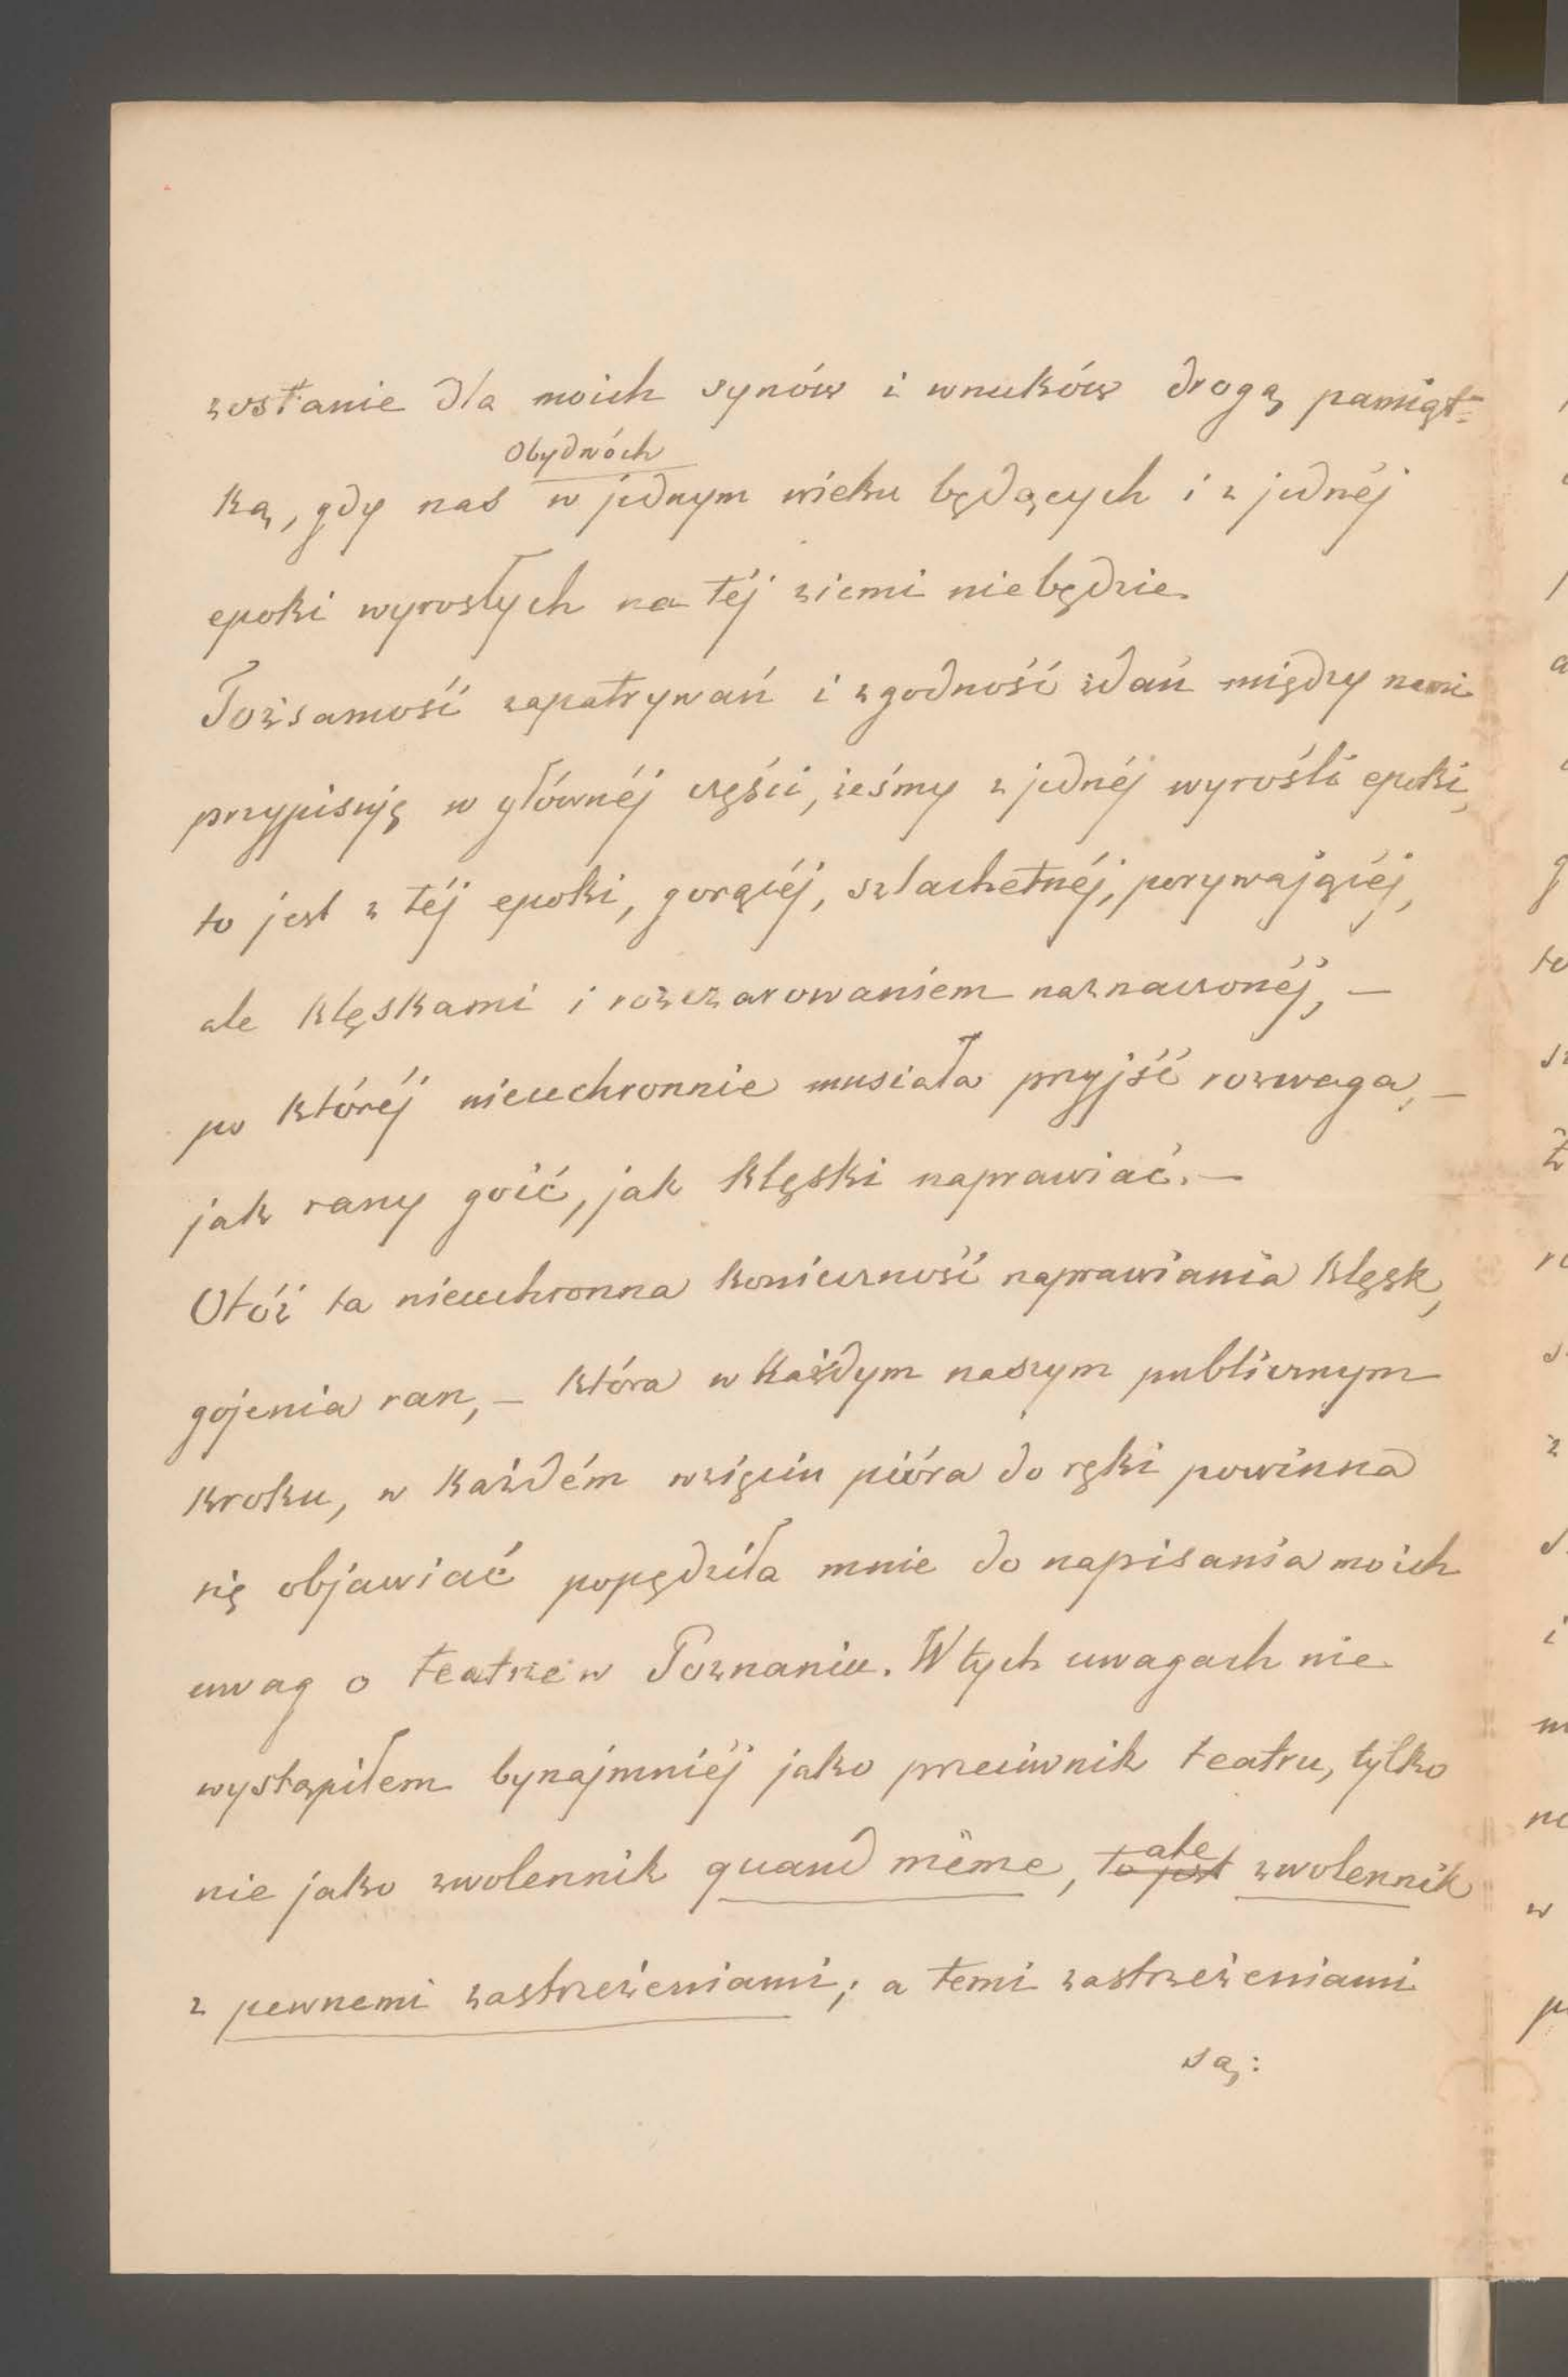 zostanie dla moich synów i wnuków drogą pamiąt-
obydwóch
ką, gdy nas w jednym wieku będących i z jednéj
epoki wyrosłych na téj ziemi niebędzie.
Tożsamość zapatrywań i zgodność zdań między nami
przypisuję w głównéj części, żeśmy z jednéj wyrośli epoki,
to jest z téj epoki, gorącéj, szlachetnéj, porywającéj,
ale klęskami i rozczarowaniem naznaczonéj, –
po któréj nieuchronnie musiała przyjść rozwaga, –
jak rany goić, jak klęski naprawiać. –
Otóż ta nieuchronna konieczność naprawiania klęsk,
gojenia ran, – która w każdym naszym publicznym
kroku, w każdém wzięciu pióra do ręki powinna
się objawiać popędziła mnie do napisania moich
uwag o teatrze w Poznaniu. W tych uwagach nie
wystąpiłem bynajmniéj jako przeciwnik teatru, tylko
nie jako zwolennik quand même, to jest ale zwolennik
z pewnemi zastrzeżeniami; a temi zastrzeżeniami
są: